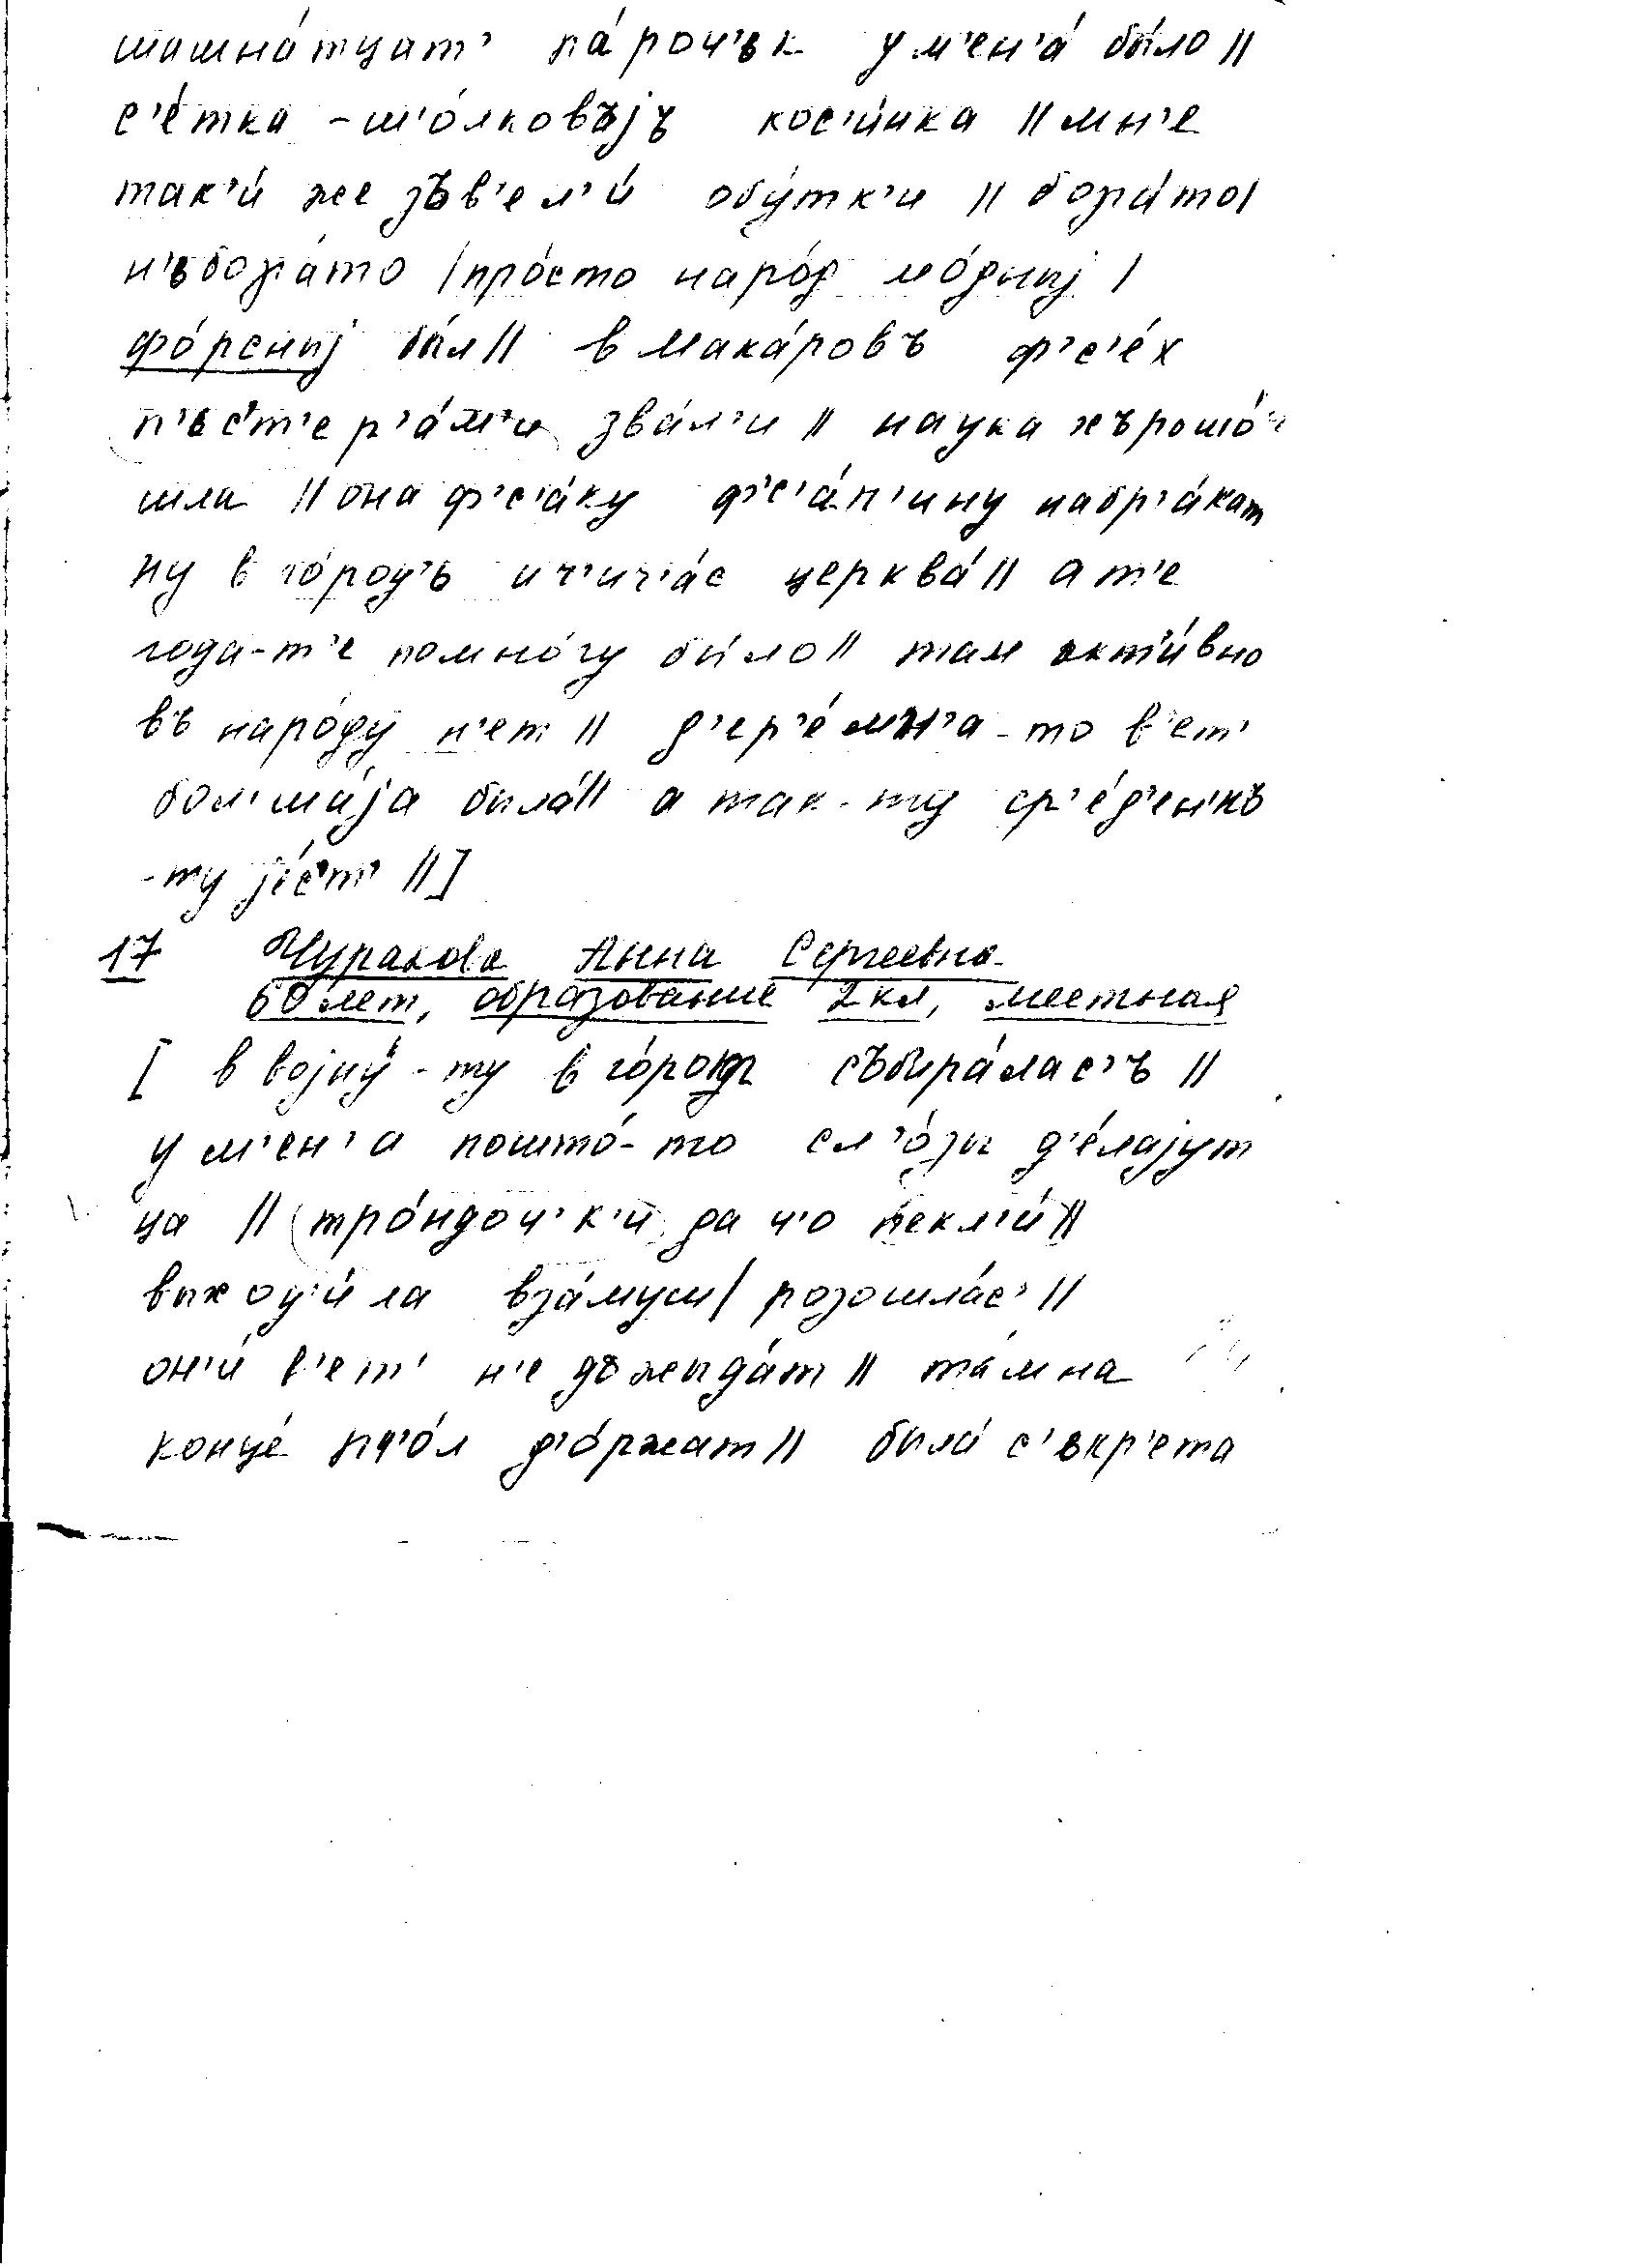 шашна́тцат’ па́роч’ьк у м’ен’а́ бы́ло ||
с’е́тка - ш’о́лковъjъ кос’и́нка || мн’е
так’и́ же зъв’ел’и́ обу́тк’и || бога́то |
н’ьбога́то | про́сто наро́д мо́дныj |
фо́рсныj бы́л || в мака́ровъ ф’с’е́х
п’ьс’т’ер’а́м’и зва́л’и || наука хърошо́
шла || она ф’с’а́ку ф’с’а́п’ину набр’а́кат
ну в го́род’ь и ч’ич’а́с церква́ || а т’е
года-т’е помно́гу бы́ло || там акт’и́вно
въ наро́ду н’ет || д’ер’е́мн’а-то в’ет’
бол’ша́jа была́ || а так-ту ср’е́д’ен’къ
-ту jе́с’т’ ||]
17 Чуракова Анна Сергеевна
60 лет, образование 2 кл, местная
[ в воjну́-ту в го́род събира́лас’ъ ||
у м’ен’а пошто́-то сл’о́зы д’е́лаjут
ца || тро́ндоч’к’и да ч’о пекл’и́ ||
выход’и́ла вза́муш | розошла́с’ ||
он’и́ в’ет’ н’е дъжыда́т || та́м на
конце́ пч’о́л д’о́ржат || была́ с’ькр’ета